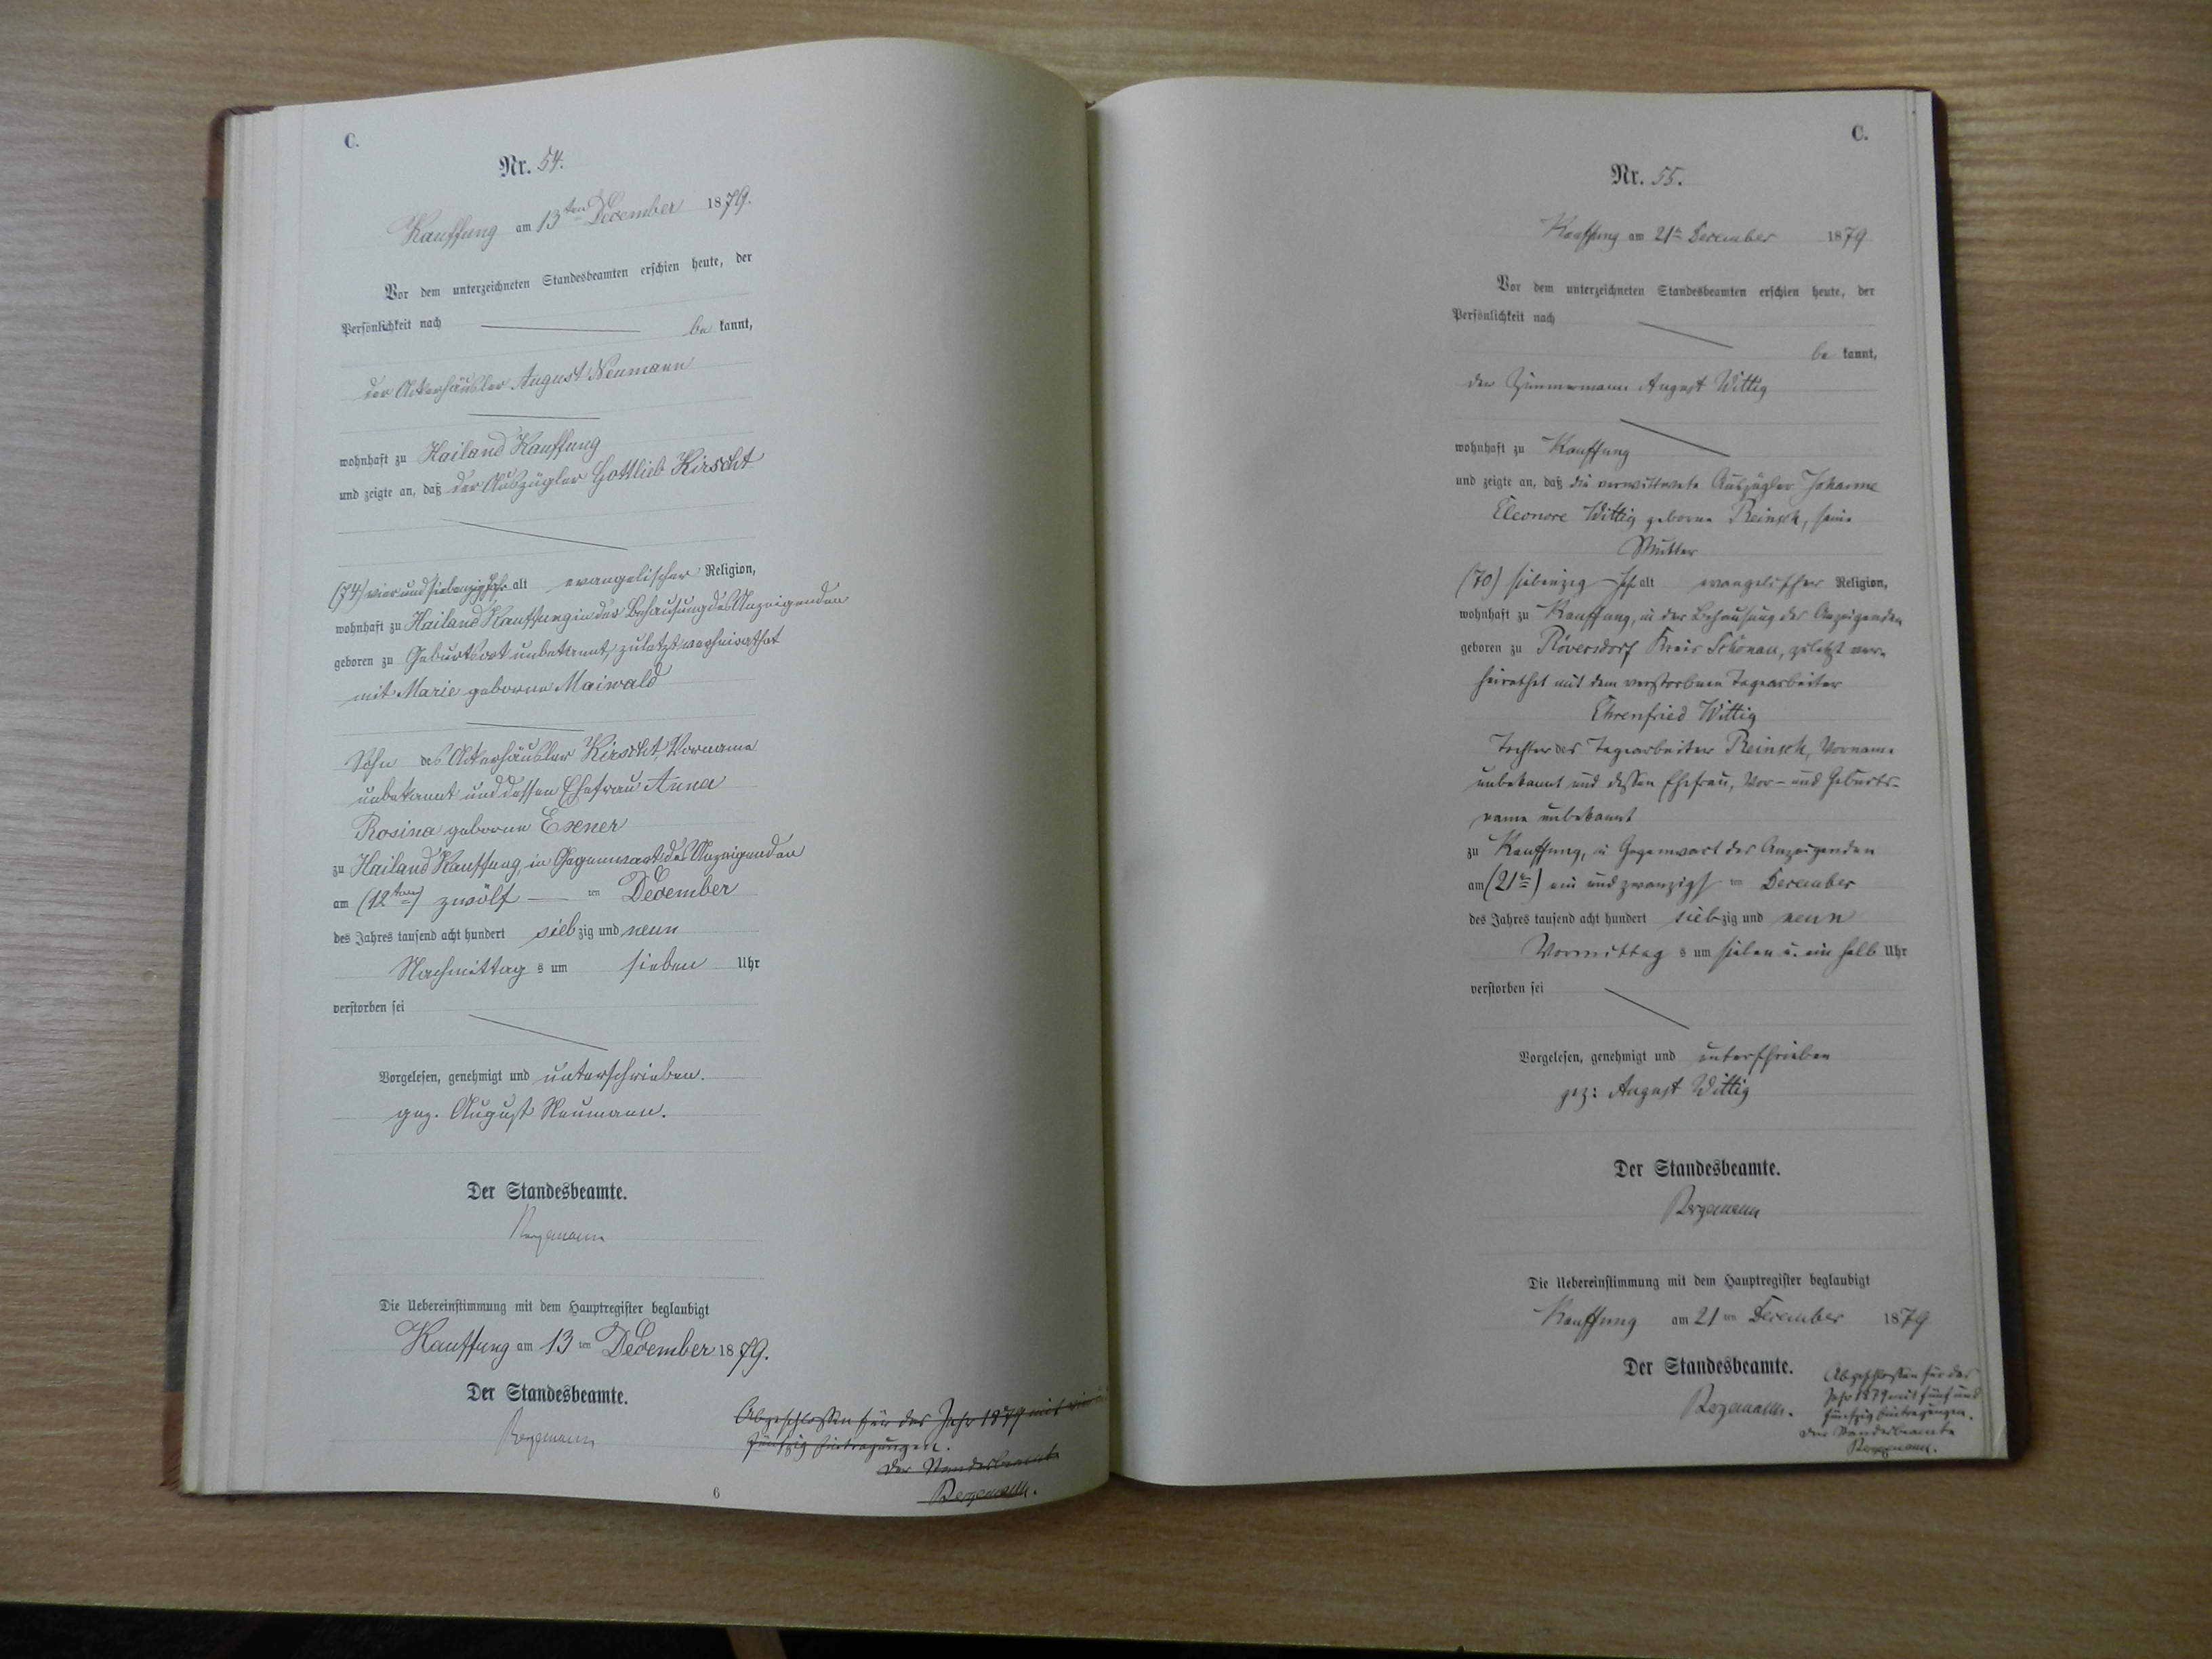 C.
Nr. 54.
Kauffung am 13ten December 1879.
Vor dem unterzeichneten Standesbeamten erschien heute, der
Persönlichkeit nach be kannt,
der Ackerhäusler August Neumann
wohnhaft zu Hailand Kauffung
und zeigte an, daß der Auszügler Gottlieb Kirscht
(74) vier und siebenzig Jahr alt evangelischer Religion,
wohnhaft zu Hailand Kauffung in der Behausung des Anzeigenden
geboren zu Geburtsort unbekannt, zuletzt verheirathet
mit Marie geborne Maiwald
Sohn des Ackerhäusler Kirscht, Vorname
unbekannt und dessen Ehefrau Anna
Rosina geborne Exner
zu Hailand Kauffung, in Gegenwart des Anzeigenden
am (12ten) zwölf ten December
des Jahres tausend acht hundert siebzig und neun
Nachmittag s um sieben Uhr
verstorben sei
Vorgelesen, genehmigt und unterschrieben.
gez. August Neumann.
Der Standesbeamte.
Bergemann
Die Uebereinstimmung mit dem Hauptregister beglaubigt
Kauffung am 13 ten December 1879.
Der Standesbeamte.
Bergemann
Abgeschlossen für das Jahr 1879 mit vier
fünfzig Eintragungen.
Der Standesbeamte
Bergemann.
6
C.
Nr. 55.
Kauffung am 21ten December 1879
Vor dem unterzeichneten Standesbeamten erschien heute, der
Persönlichkeit nach
be kannt,
der Zimmermann August Wittig
wohnhaft zu Kauffung
und zeigte an, daß die verwittwete Auszügler Johanne
Eleonore Wittig geborne Reinsch, seine
Mutter
(70) siebenzig Jahr alt evangelischer Religion,
wohnhaft zu Kauffung, in der Behausung des Anzeigenden
geboren zu Röversdorf Kreis Schönau, zuletzt ver-
heirathet mit dem verstorbnen Tagearbeiter
Ehrenfried Wittig
Tochter des Tagearbeiter Reinsch, Vorname
unbekannt und dessen Ehefrau, Vor- und Geburts-
name unbekannt
zu Kauffung, in Gegenwart des Anzeigenden
am (21ten) ein und zwanzigst ten December
des Jahres tausend acht hundert siebzig und neun
Vormittag s um sieben u. ein halb Uhr
verstorben sei
Vorgelesen, genehmigt und unterschrieben
gez: August Wittig
Der Standesbeamte.
Bergemann
Die Uebereinstimmung mit dem Hauptregister beglaubigt
Kauffung am 21 ten December 1879
Der Standesbeamte.
Bergemann.
Abgeschlossen für das
Jahr 1879 mit fünf und
fünfzig Eintragungen.
Der Standesbeamte
Bergemann.